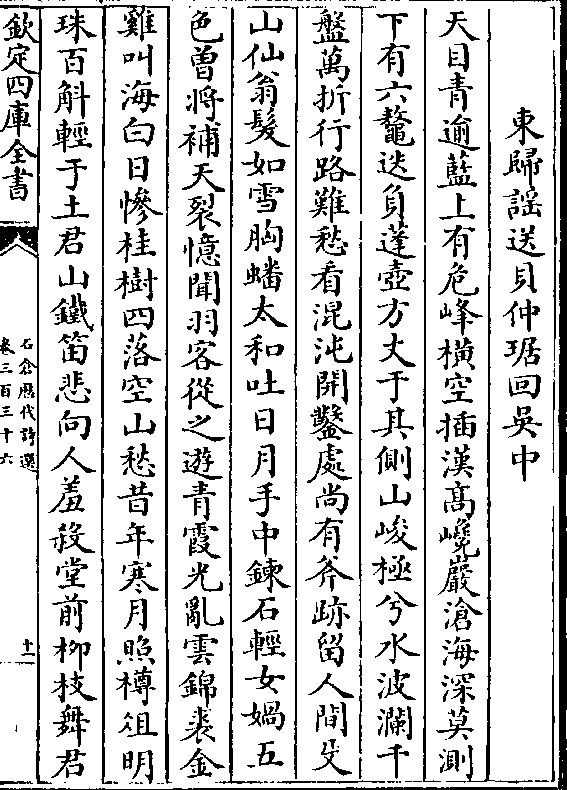 東歸謡送貝仲琚回吳中
天目青逾藍上有危峰橫空插漢髙巉巖滄海深莫測
下有六鼇迭負蓬壺方丈于其側山峻極兮水波瀾千
盤萬折行路難愁看混沌開鑿處尚有斧跡留人間艾
山仙翁髮如雪胸蟠太和吐日月手中鍊石輕女媧五
色曽將補天裂憶聞羽客從之遊青霞光亂雲錦裘金
雞叫海白日慘桂樹四落空山愁昔年寒月照樽俎明
珠百斛輕于土君山鐵笛悲向人羞殺堂前柳枝舞君
欽定四庫全書
石倉歴代詩選
卷三百三十六
十一